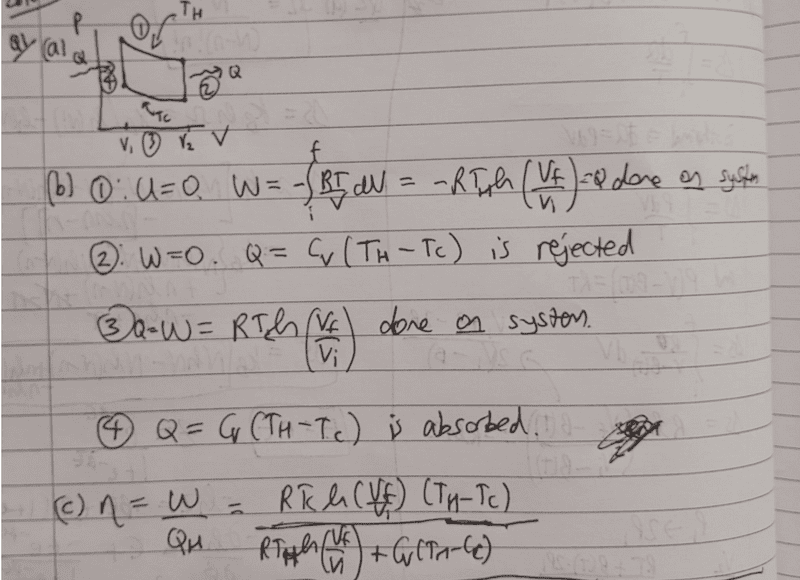 Q1 (a)
P
① T_H
Q
④ → Q
②
T_C
V₁ ③ V₂ V
(b) ①: U=0. W = -∫_i^f RT/V dV = -RT_H ln(V_f/V_i) = Q done on system
②: W=0. Q = C_V (T_H - T_C) is rejected
③ Q=W = RT_C ln(V_f/V_i) done on system.
④ Q = C_V (T_H - T_C) is absorbed.
(c) η = W/Q_H = RT_C ln(V_f/V_i) (T_H - T_C)
RT_H ln(V_f/V_i) + C_V (T_H - T_C)